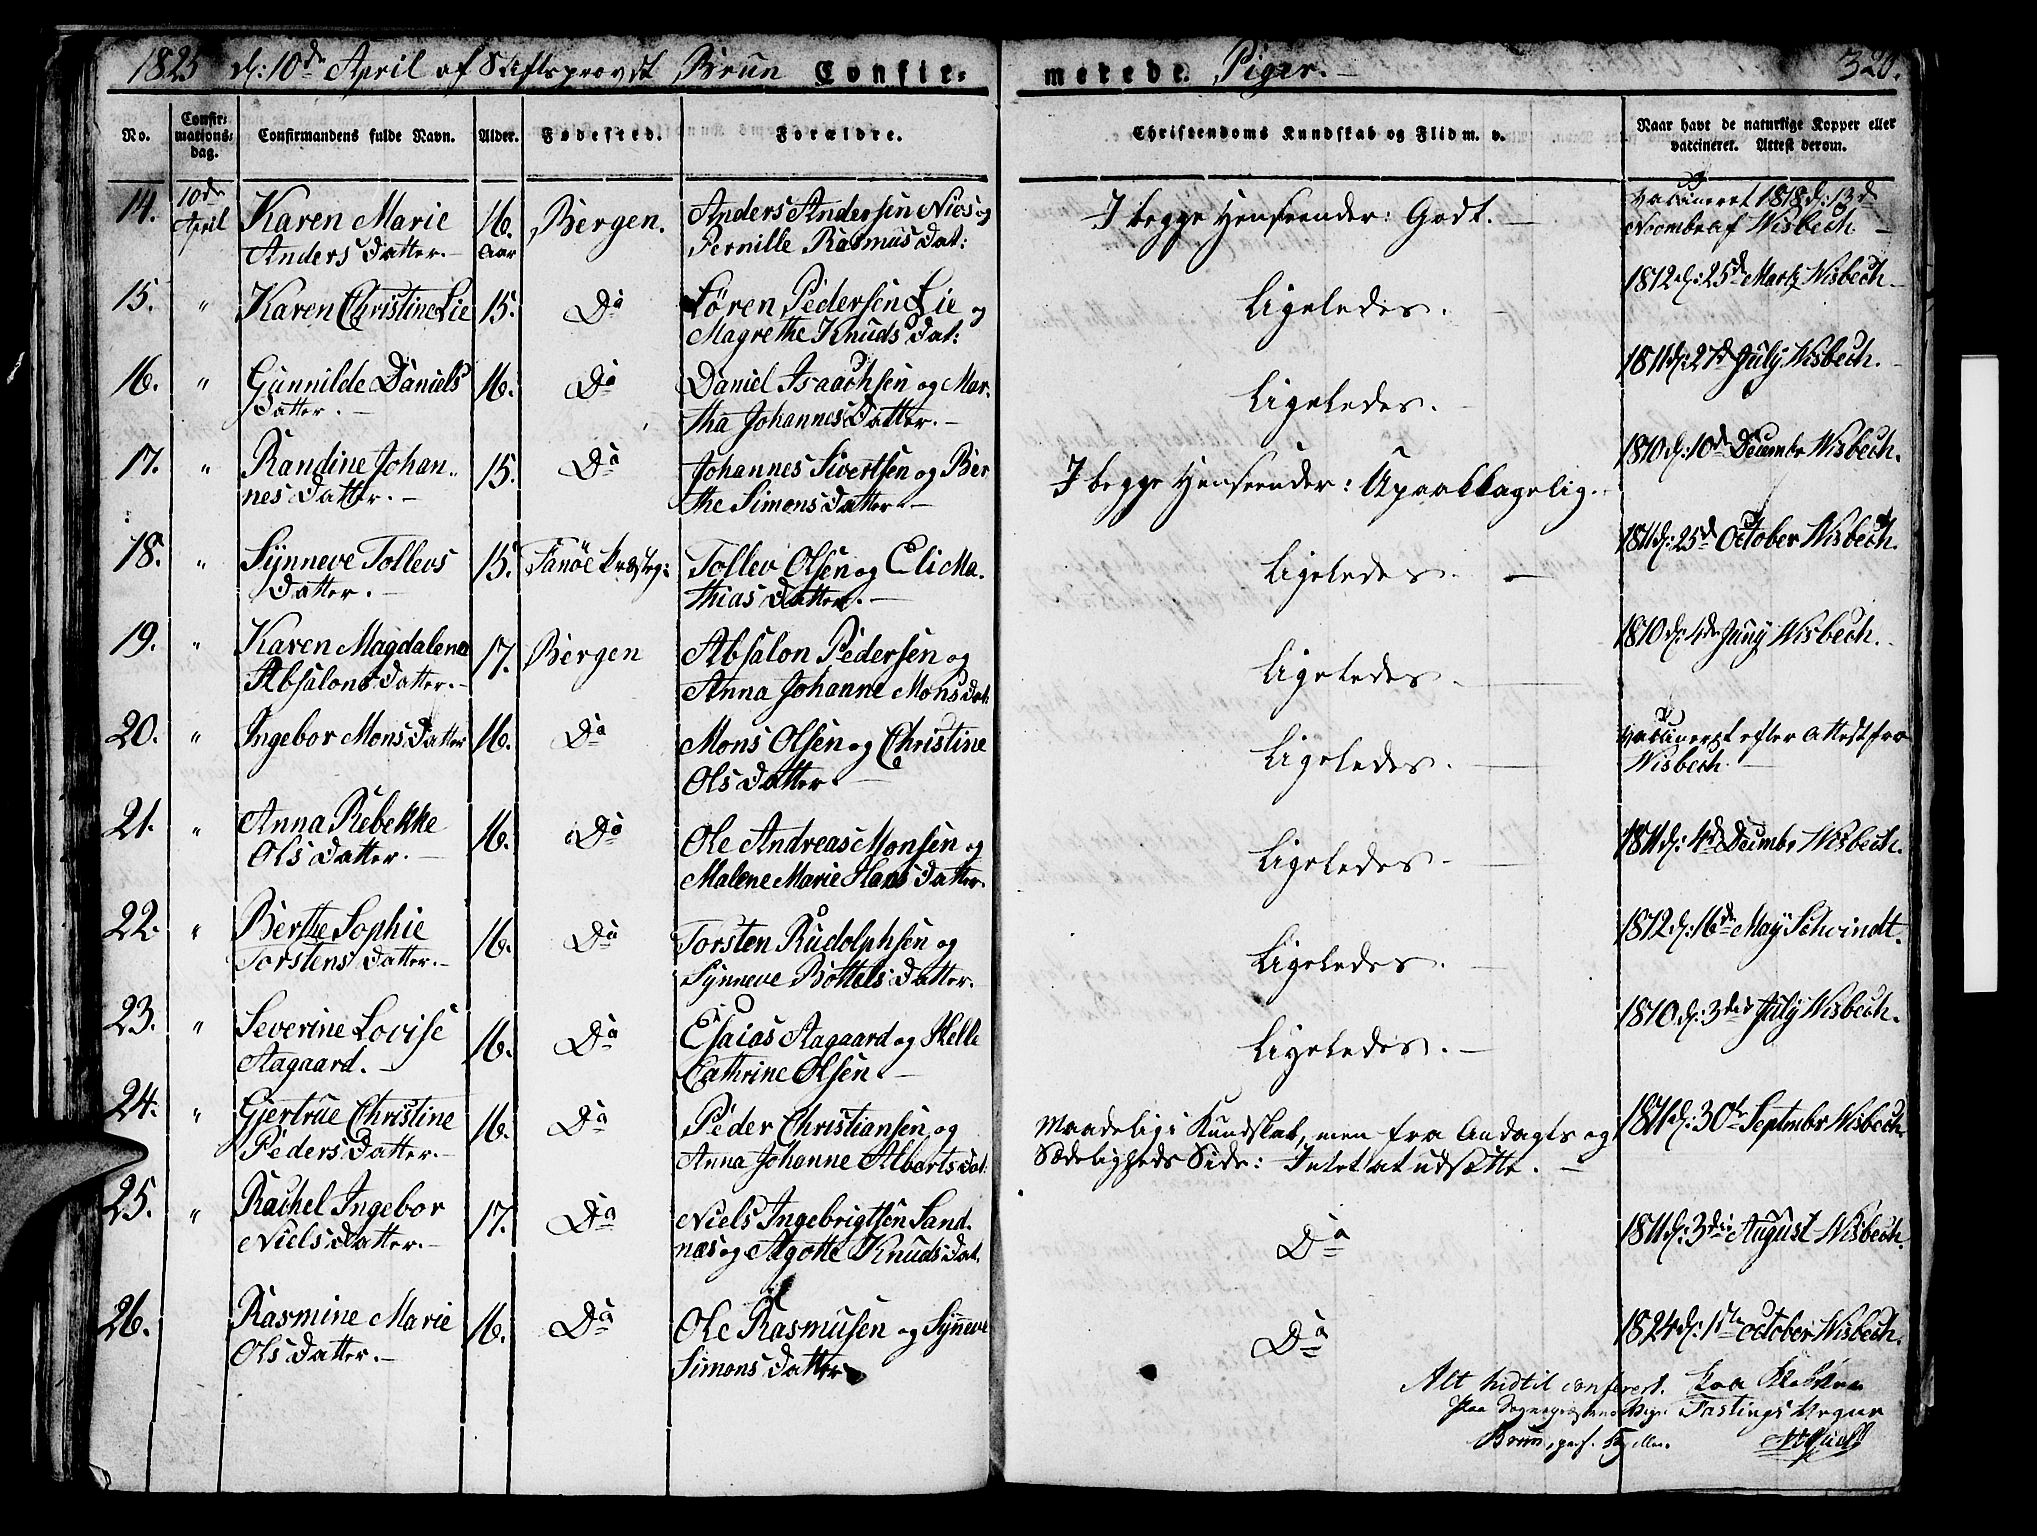 1825 d: 10de April af Stiftsprovst Brun Confir-
merede Piger.
320.
No.
Confir-
mations-
dag.
Confirmandens fulde Navn.
Alder.
Fødested.
Forældre.
Christendoms Kundskab og Flid m. v.
Naar havt de naturlige Kopper eller
vaccineret. Attest derom.
14. 10de
April
Karen Marie
Anders Datter.
16.
Aar
Bergen.
Anders Andersen Nies og
Pernille Rasmus Dat:
I begge Henseender: Godt.
Vaccineret 1818 d: 13de
Novembr af Wisbech.
15. " Karen Christine Lie 15. Do
Søren Pedersen Lie og
Magrethe Knuds Dat:
Ligeledes.
1812 d: 25de Martz Wisbech.
16. " Gunnilde Daniels
Datter.
16. Do
Daniel Isaachsen og Mar-
tha Johannes Datter.
Ligeledes.
1811 d: 27de July Wisbech.
17. " Randine Johan-
nes Datter.
15. Do
Johannes Sivertsen og Ber
the Simons Datter.
I begge Henseender: Upaaklagelig.
1810 d: 10de Decembr Wisbech.
18. " Synneve Tollevs
Datter.
15. Fanøe Præsteg:
Tollev Olsen og Eli Ma-
thias Datter.
Ligeledes.
1811 d: 25de October Wisbech.
19. " Karen Magdalena
Absalons Datter.
17. Bergen
Absalon Pedersen og
Anna Johanne Mons Dat:
Ligeledes.
1810 d: 4de Juny Wisbech.
20. " Ingebor Mons Datter 16. Do
Mons Olsen og Christine
Ols Datter.
Ligeledes.
Vaccineret efter Attest fra
Wisbech.
21. " Anna Rebekke
Ols Datter.
16. Do
Ole Andreas Monsen og
Malene Marie Hans Datter.
Ligeledes.
1811 d: 4de Decembr Wisbech.
22. " Berthe Sophie
Torstens Datter.
16. Do
Torsten Rudolphsen og
Synneve Bottels Datter.
Ligeledes.
1812 d: 16de May Schvindt.
23. " Severine Lovise
Aagaard.
16. Do
Esaias Aagaard og Helle
Cathrine Olsen.
Ligeledes.
1810 d: 3die July Wisbech.
24. " Gjertrue Christine
Peders Datter.
16. Do
Peder Christiansen og
Anna Johanne Alberts Dat:
Maadelig i Kundskab, men fra Andagts og
Sædeligheds Side: Intet at udsætte.
1811 d: 30te Septembr Wisbech.
25. " Rachel Ingebor
Niels Datter.
17. Do
Niels Ingebrigtsen Sand-
næs og Agotte Knuds Dat.
Do
1811 d: 3die August Wisbech.
26. Rasmine Marie
Ols Datter.
16. Do
Ole Rasmusen og Synneve
Simons Datter.
Do
1824 d: 1ste October Wisbech.
Alt hidtil confereret.
Paa Sognepræstens
Brun,